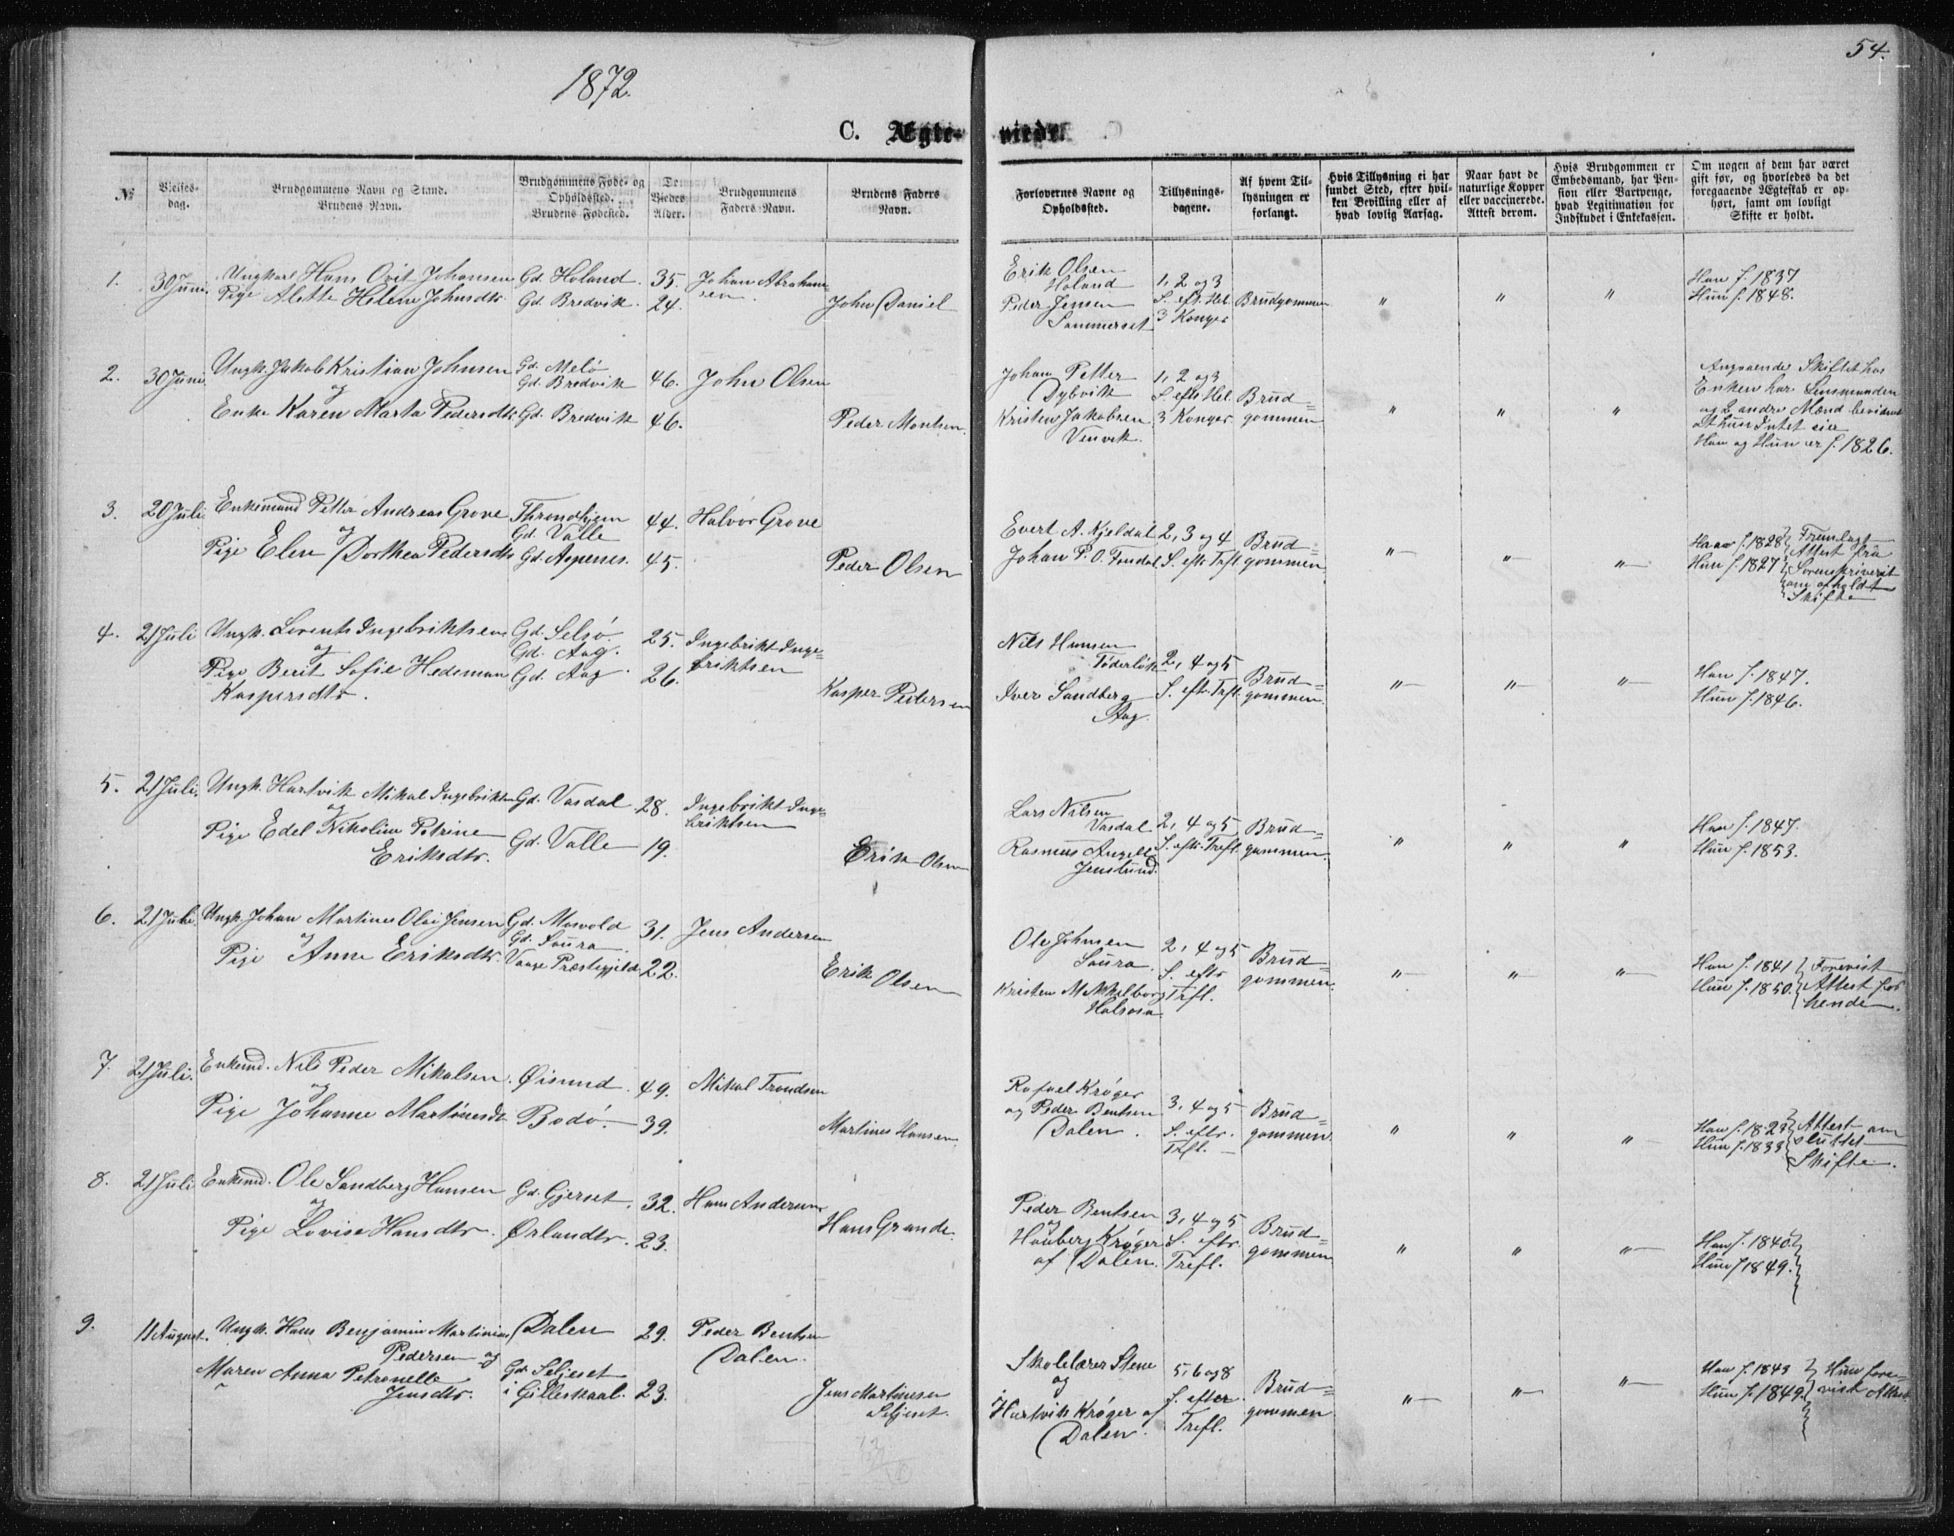 54.
1872.
C. Ægte- viede.
№
Vielses-
dag.
Brudgommens Navn og Stand.
Brudens Navn.
Brudgommens Føde- og
Opholdssted.
Brudens Fødested.
De
Viedes
Alder.
Brudgommens
Faders Navn.
Brudens Faders
Navn.
Forlovernes Navne og
Opholdssted.
Tillysnings-
dagene.
Af hvem Til-
lysningen er
forlangt.
Hvis Tillysning ei har
fundet Sted, efter hvil-
ken Bevilling eller af
hvad lovlig Aarsag.
Naar havt de
naturlige Kopper
eller vaccinerede.
Attest derom.
Hvis Brudgommen er
Embedsmand, har Pen-
sion eller Vartpenge,
hvad Legitimation for
Indskudet i Enkekassen.
Om nogen af dem har været
gift før, og hvorledes da det
foregaaende Ægteskab er op-
hørt, samt om lovligt
Skifte er holdt.
1. 30 Juni. Ungkarl Hans Ovit Johansen Gd. Holand 35. Johan Abraham-
sen
Pige Alette Helene Johnsdtr. Gd. Bredvik 24. John Daniel
Erik Olsen
Holand
Peder Jensen
Sommerset
1, 2 og 3
S. eft. Hel.
3 Konger
Brudgommen " " "
Han f. 1837
Hun f. 1848.
2. 30 Juni. Ungk. Jakob Kristian Johnsen Gd. Melø
Gd. Bredvik 46. John Olsen
og
Enke Karen Marta Pedersdtr. Gd. Bredvik 46. Peder Montsen.
Johan Petter
Dybvik
Kristen Jakobsen
Venvik.
1, 2 og 3
S. eftr Hel.
3 Konger
Brud=
gommen " " "
Angaaende Skiftet hos
Enken har Lensmanden
og 2 andre Mænd bevidnet
at hun Intet eier
Han og Hun er f. 1826.
3. 20 Juli. Enkemand Petter Andreas Grove Throndhjem
Gd. Valle 44. Halvor Grove
og
Pige Elen Dorthea Pedersdtr. Gd. Aspenes. 45. Peder Olsen
Evert A. Kjeldal
Johan P. O. Tendal
2, 3 og 4
S. eftr Trfl.
Brud=
gommen " " "
Han f. 1828
Hun f. 1827
Fremlagt
Attest fra
Sorenskriveriet
om afholdt
Skifte
4. 21 Juli Ungk. Lorents Ingebriktsen Gd. Selsø.
Gd. Aag. 25. Ingebrikt Inge=
briktsen
og
Pige Berit Sofie Hedeman Gd. Aag 26.
Kaspersdtr. Kasper Pedersen
Nils Hansen
Tøderløk
Iver Sandberg
Aag.
2, 4 og 5
S. eftr Trfl.
Brud=
gommen. " " "
Han f. 1847.
Hun f. 1846.
5. 21 Juli. Ungk. Hartvik Mikal Ingebriktsen Gd. Vasdal 28. Ingebrikt Inge-
briktsen
og
Pige Edel Nikoline Petrine Gd. Valle 19.
Eriksdtr. Erik Olsen
Lars Nilsen
Vasdal
Rasmus Angell
Jenslund.
2, 4 og 5
S. eftr. Trefl.
Brud=
gommen. " " "
Han f. 1847.
Hun f. 1853.
6. 21 Juli. Ungk. Johan Martines Olai Jensen Gd. Mosvold
Gd. Saura 31. Jens Andersen
og
Pige Anne Eriksdtr. Vaage Præstegjeld 22. Erik
Olsen
Ole Johnsen
Saura.
Kristen Mekkelborg
Halsosa
2, 4 og 5
S. eftr
Trfl.
Brud=
gommen. " " "
Han f. 1841
Hun f. 1850.
Forevist
Attest for
hende
7. 21 Juli. Enkemd. Nils Peder Mikalsen Øisund 49. Mikal Trondsen
og
Pige Johanne Martinusdtr. Bodø. 39. Martines Hansen.
Rafael Krøger
og Peder Bentsen
Dalen.
3, 4 og 5
S. eftr.
Trfl.
Brud=
gommen. " " "
Han f. 1823
Hun f. 1833
Attest om
sluttet
Skifte.
8. 21 Juli Enkemd. Ole Sandberg Hansen Gd. Gjerset 32. Hans Andersen
og
Pige Lovise Hansdtr. Ørlandtr. 23. Hans Grande.
Peder Bentsen
og
Hauberg Krøger
af Dalen.
3, 4 og 5
S. eftr.
Trefl.
Brud=
gommen " " "
Han f. 1840.
Hun f. 1849.
9. 11 August. Ungk. Hans Benjamin Martinius Dalen 29. Peder Bentsen
Dalen.
Pedersen og
Maren Anna Petronella Gd. Seljeset
Jensdtr. i Gilleskaal. 23. Jens Martinsen
Seljeset.
Skolelærer Stene
og
Hartvik Krøger af
Dalen.
5, 6 og 8
S. efter
Trefl.
Brud=
gommen " " "
Han f. 1843
Hun f. 1849.
Hun fore-
vist Attest